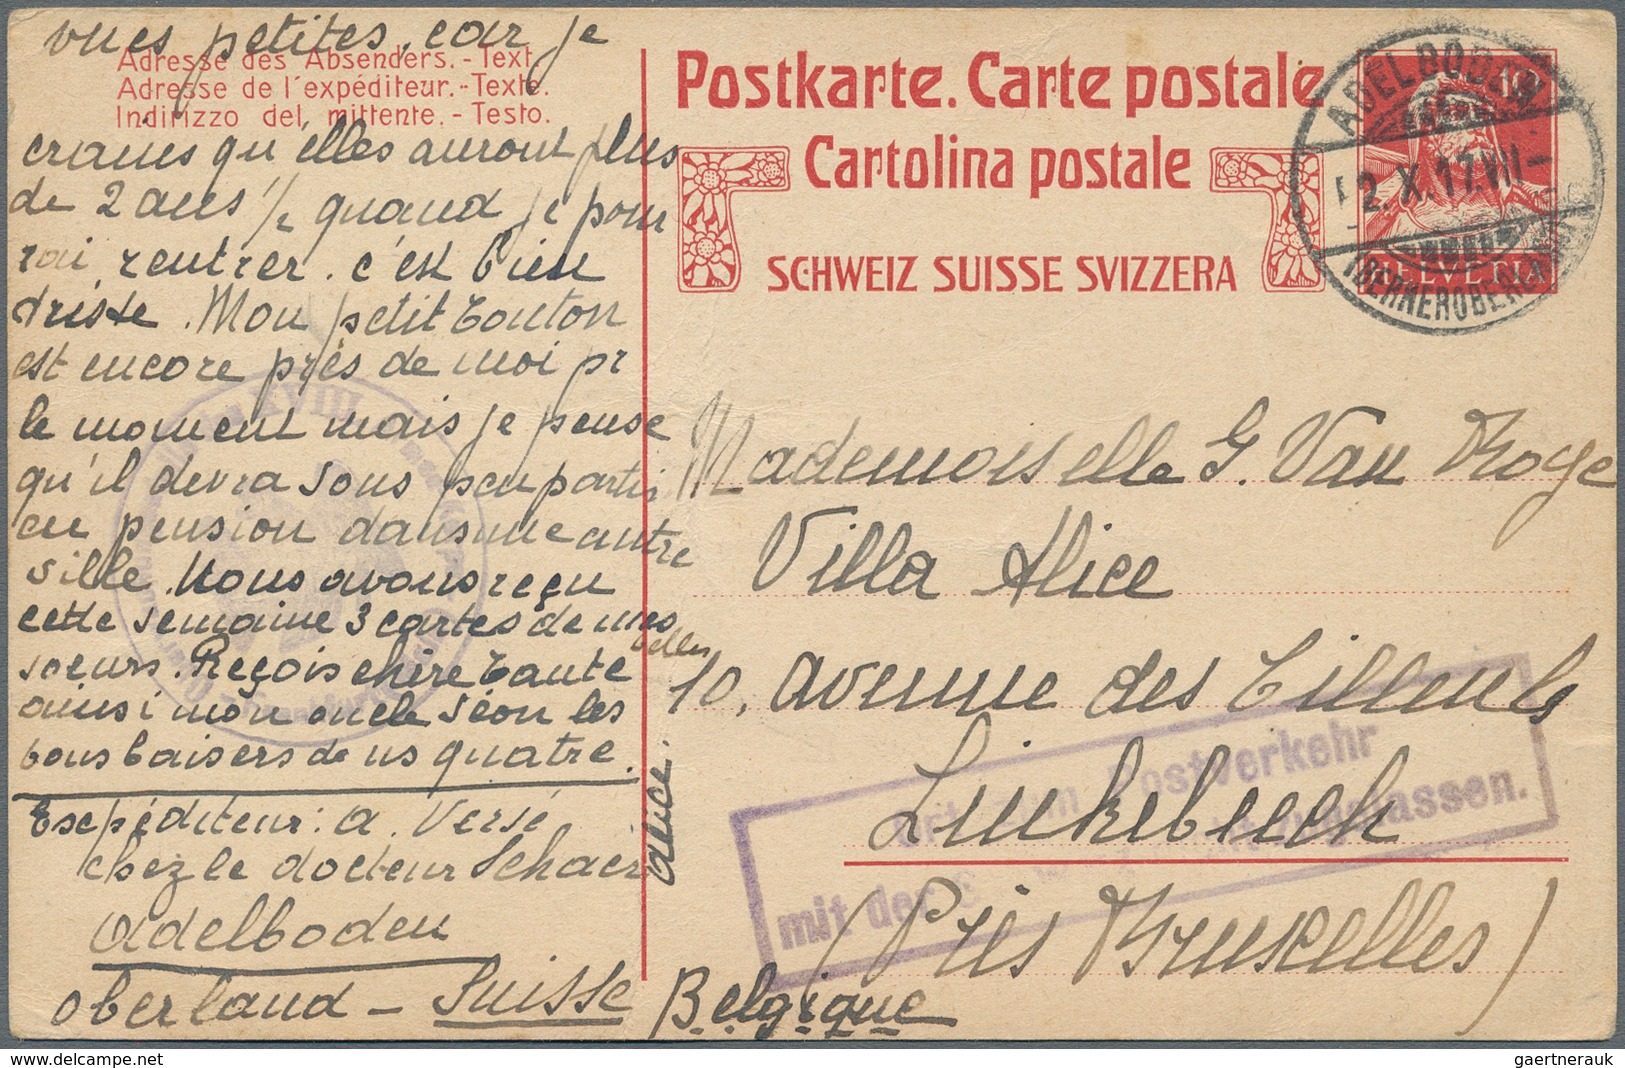 vues petites, car je
Adresse des Absenders. - Text.
Adresse de l'expéditeur. - Texte.
Indirizzo del mittente. - Testo.
crains qu'elles auront plus
de 2 ans ½ quand je pour
rai rentrer. c'est bien
triste. Mon petit Tonton
est encore près de moi pr
le moment mais je pense
qu'il devra sous peu partir
en pension dans une autre
ville. Nous avons reçu
cette semaine 3 cartes de mes
soeurs. Reçois chère Tante
ainsi mon oncle Séon les
bons baisers de ns quatre.
Alice.
Expéditeur: A. Versé
chez le docteur Schaer
Adelboden
Oberland - Suisse
Postkarte. Carte postale
Cartolina postale
SCHWEIZ SUISSE SVIZZERA
10
HELVETIA
ADELBODEN
2. X. 17. VII -
(BERNEROBERLAND)
Mademoiselle G. Van Roye
Villa Alice
10, Avenue des Tilleuls
Linkebeek
(Près Bruxelles)
Belgique
XVIII
Postverkehr
mit der zugelassen.
gaertnerauk @ delcampe.net